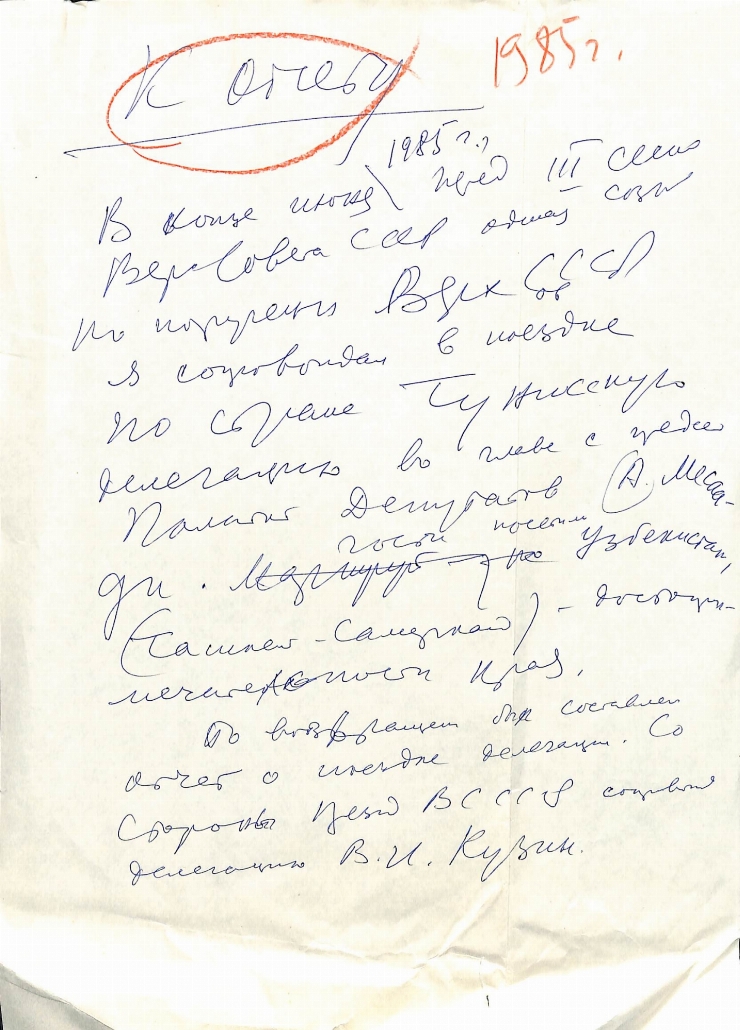 К отчету
1985 г.
1985 г.,
В конце июня перед III сесс
Верх Совета СССР одинад созы
по поручен Верх Сов СССР
я сопровождал в поездке
по стране Тунисскую
делегацию во главе с предсе
Палаты Депутатов (А. Меса-
ди. гости посетили Узбекистан,
Маршрут - по
(Ташкент - Самарканд) - достопри-
мечательности края.
По возвращен был составлен
отчет о поездке делегации. Со
стороны През ВС СССР сопровожд
делегацию В.И. Кузин.